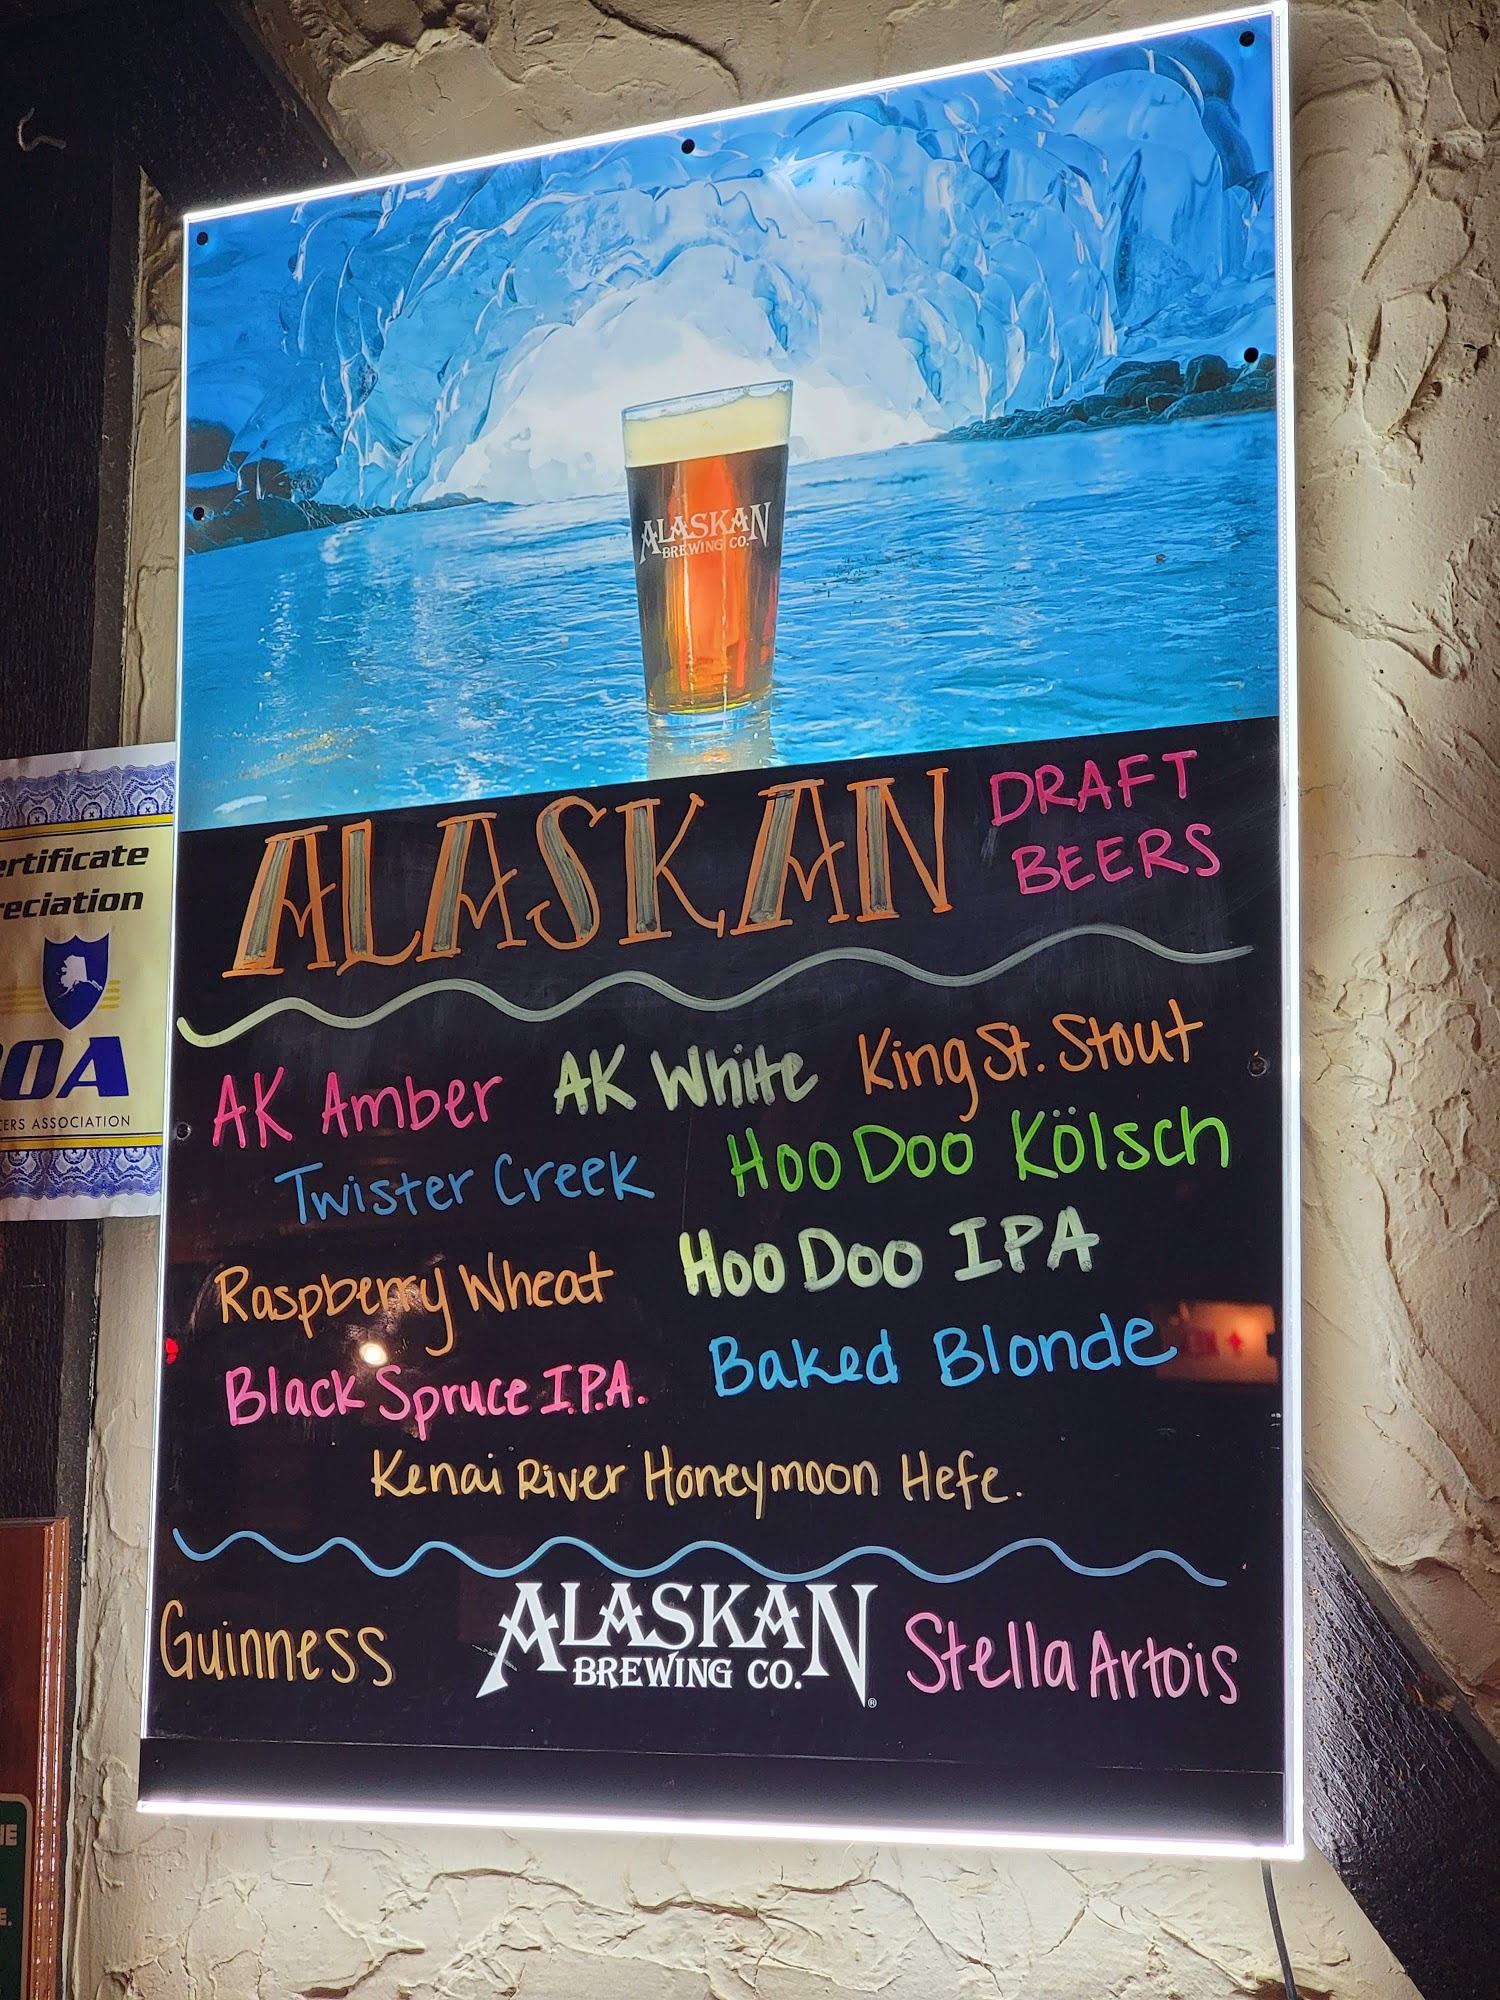 ALASKAN
BREWING CO.
ALASKAN DRAFT
BEERS
AK Amber AK White King St. Stout
Twister Creek Hoo Doo Kölsch
Raspberry Wheat Hoo Doo IPA
Black Spruce I.P.A. Baked Blonde
Kenai River Honeymoon Hefe.
Guinness ALASKAN Stella Artois
BREWING CO.
®
ertificate
reciation
OA
ERS ASSOCIATION